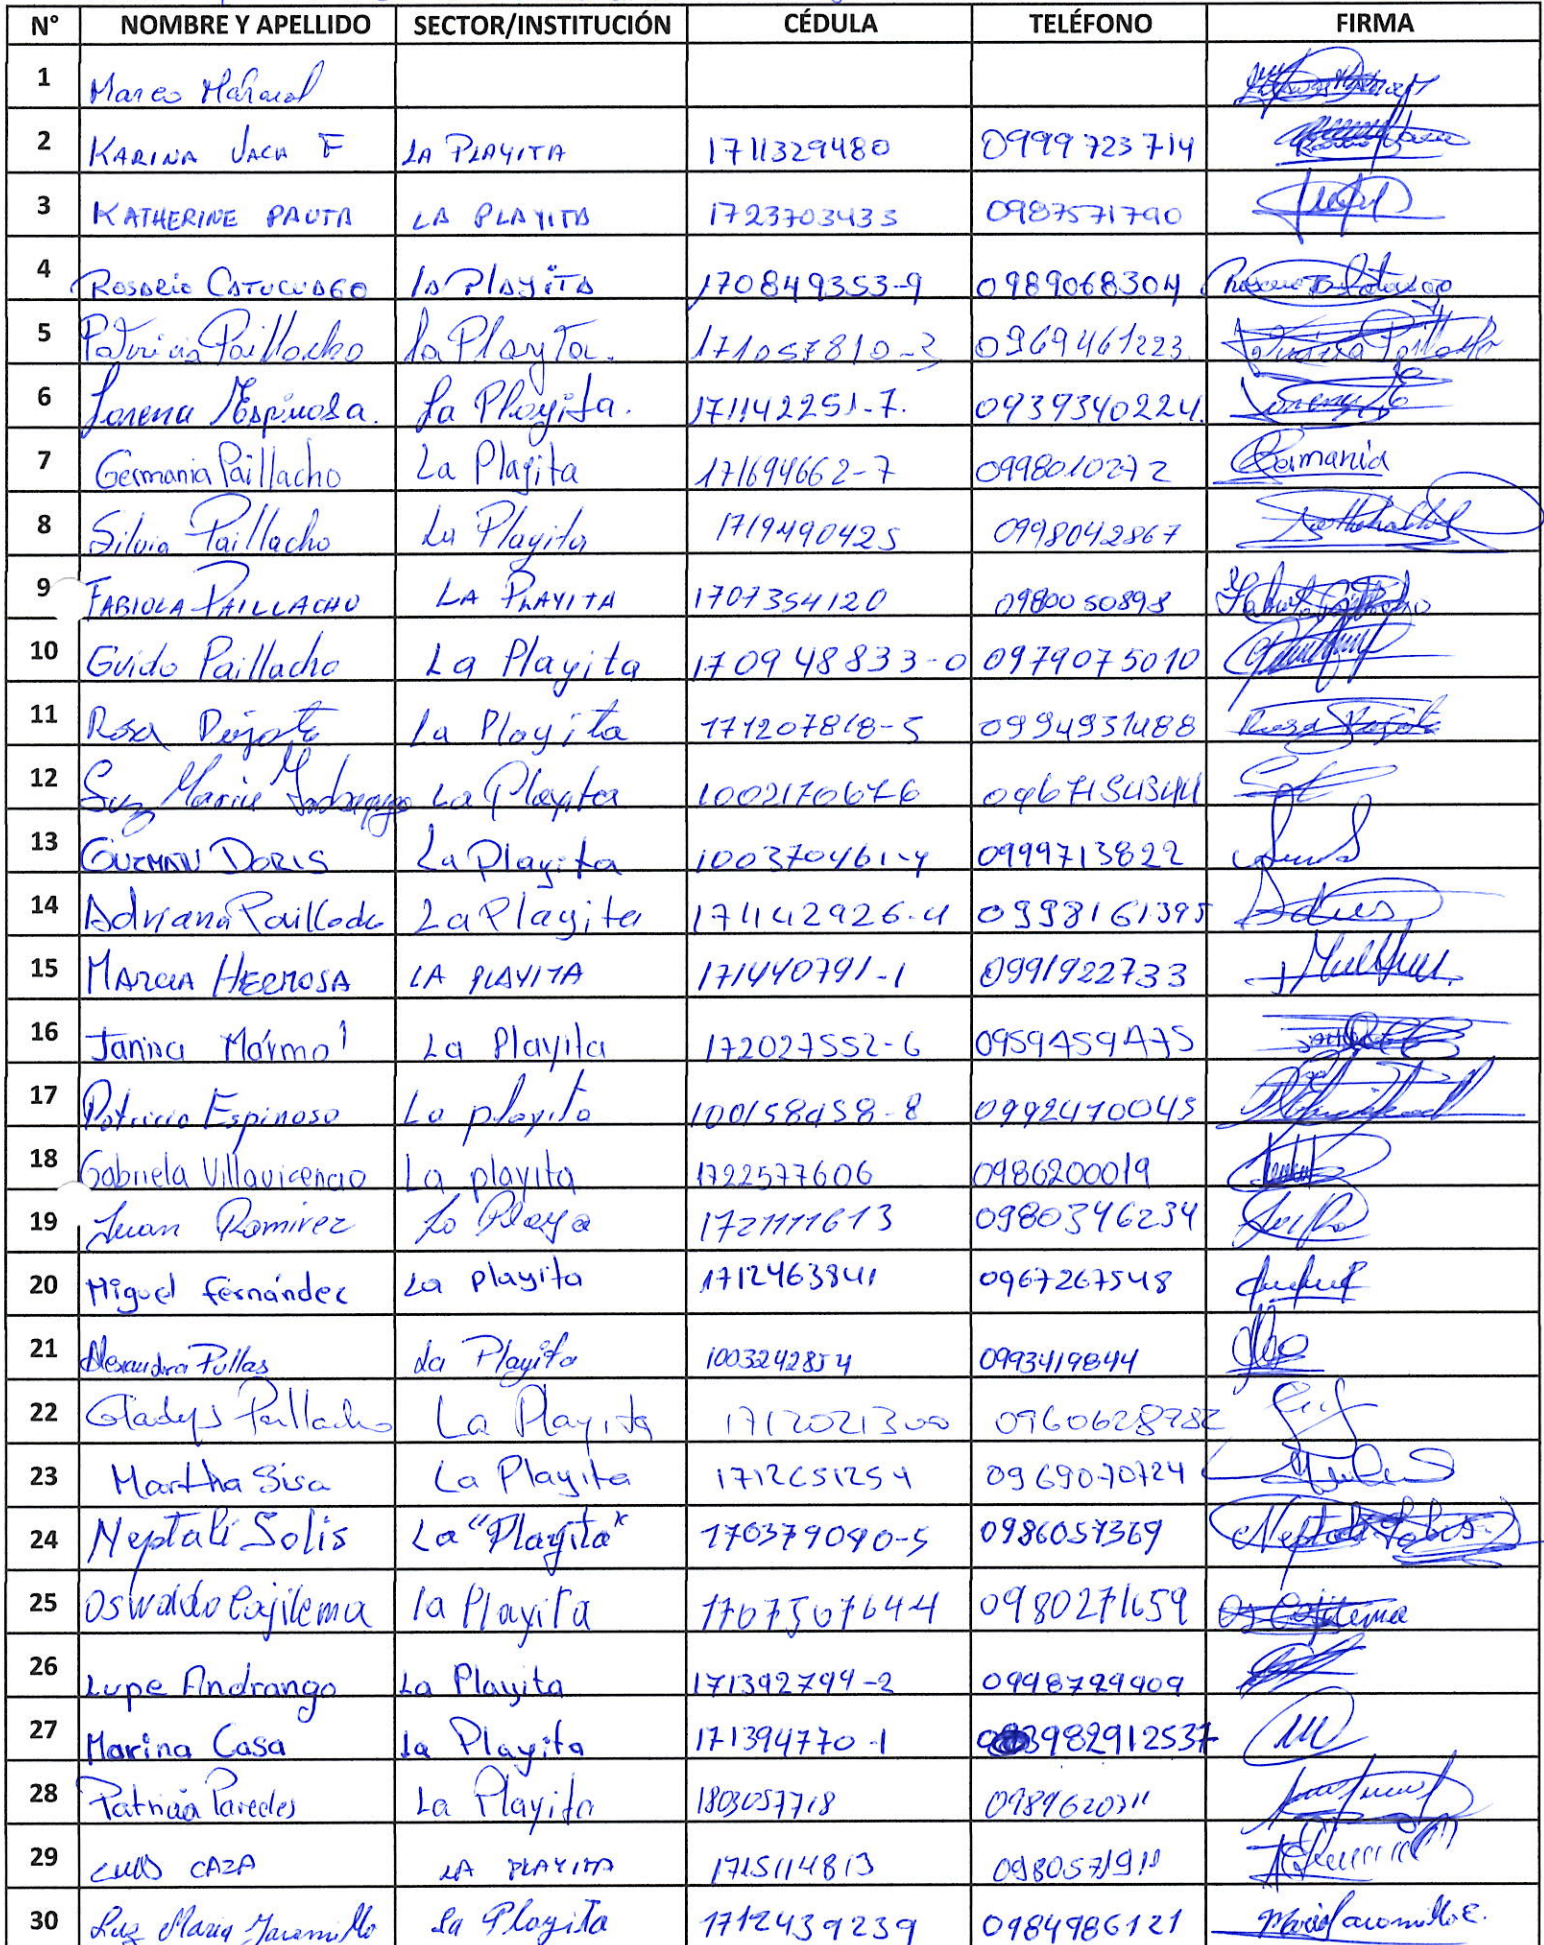 N° NOMBRE Y APELLIDO SECTOR/INSTITUCIÓN CÉDULA TELÉFONO FIRMA
1 Marco
2 KARINA VACA F LA PLAYITA 1711329480 0999723714
3 KATHERINE PAUTA LA PLAYITA 1723703433 0987571790
4 ROSARIO CATUCUAGO la PlayiTA 170849353-9 0989068304
5 Patricia Paillacho la Playta. 171057810-3 0969461223
6 Lorena Espinosa. La Playita. 171142251-7. 0939340224.
7 Germania Paillacho La Playita 171694662-7 0998010272 Germania
8 Silvia Paillacho La Playita 1719490425 0998042867
9 FABIOLA PAILLACHO LA PLAYITA 1707354120 0980050898
10 Guido Paillacho La Playita 170948833-0 0979075010
11 Rosa La Playita 171207818-5 0994931488
12 María La Playita 1002170676
13 GUZMAN DORIS La Playita 100370461-4 0999713822
14 Adriana Paillacho La Playita 171142926-4 0998161395
15 MARCIA HERMOSA LA PLAYITA 171440791-1 0991922733
16 Janina Mármol La Playita 172027552-6 0959459475
17 Patricio Espinosa La playita 100158458-8 0992470045
18 Gabriela Villavicencio La playita 1722577606 0986200019
19 Juan Ramirez La Playa 1721111613 0980346234
20 Miguel Fernández La playita 1712463841 0967267548
21 Alexandra Pullas La Playita 1003242854 0993419844
22 Gladys Paillacho La Playita 1712021300 0960628782
23 Martha Sisa La Playita 1712651254 0969070724
24 Neptalí Solis La "Playita" 170379090-5 0986057369 Neptalí Solis
25 Oswaldo Cajilema la Playita 1707507644 0980271659 Os Cajilema
26 Lupe Andrango La Playita 171392794-2 0998799909
27 Marina Casa la Playita 171394770-1 982912537
28 Patricia Paredes La Playita 1803057718
29 LUIS CAZA LA PLAYITA 1715114813 0980571911
30 Luz María Jaramillo La Playita 1712439239 0984986121 María Jaramillo E.